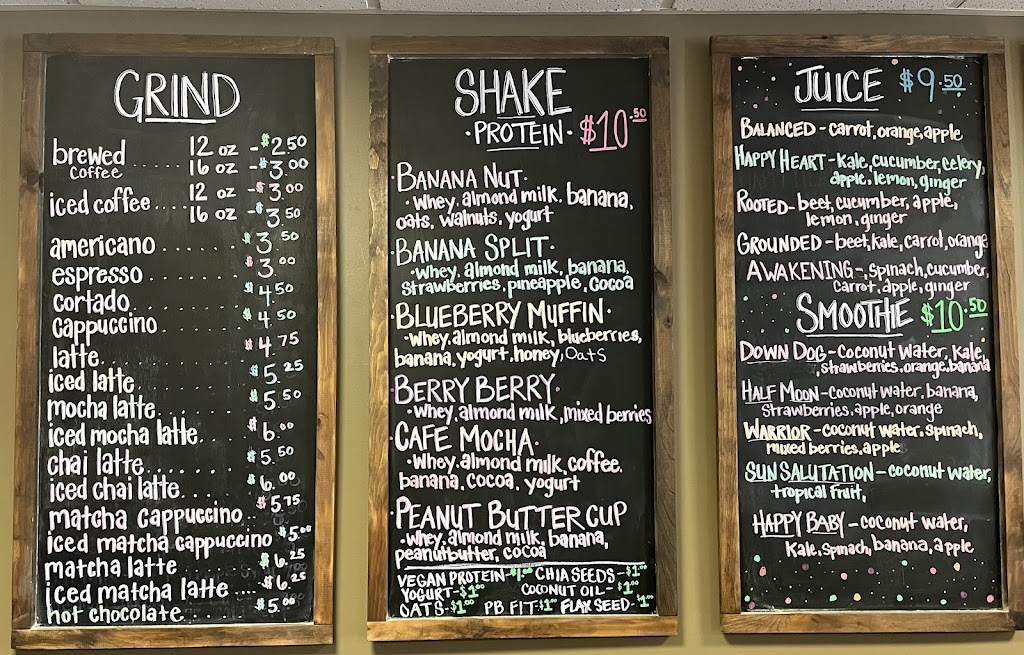 GRIND
brewed coffee ...... 12 oz - $2.50
16 oz - $3.00
iced coffee.... 12 oz - $3.00
16 oz - $3.50
americano ....... $3.50
espresso ....... $3.00
cortado....... $4.50
cappuccino ....... $4.50
latte........ $4.75
iced latte....... $5.25
mocha latte....... $5.50
iced mocha latte.... $6.00
chai latte....... $5.50
iced chai latte..... $6.00
matcha cappuccino . $5.75
iced matcha cappuccino $5.00
matcha latte ..... $6.25
iced matcha latte ... $6.25
hot chocolate...... $5.00
SHAKE
·PROTEIN· $10.50
·BANANA NUT·
·whey, almond milk, banana,
oats, walnuts, yogurt
·BANANA SPLIT·
·whey, almond milk, banana,
strawberries, pineapple, cocoa
·BLUEBERRY MUFFIN·
·whey, almond milk, blueberries,
banana, yogurt, honey, oats
·BERRY BERRY·
·whey, almond milk, mixed berries
·CAFE MOCHA·
·whey, almond milk, coffee,
banana, cocoa, yogurt
·PEANUT BUTTER CUP
·whey, almond milk, banana,
peanutbutter, cocoa
VEGAN PROTEIN-$1.00 CHIA SEEDS-$1.00
YOGURT-$1.00 COCONUT OIL-$1.00
OATS-$1.00 PB FIT-$1.00 FLAX SEED-$1.00
JUICE $9.50
BALANCED - carrot, orange, apple
HAPPY HEART - kale, cucumber, celery,
apple, lemon, ginger
ROOTED - beet, cucumber, apple,
lemon, ginger
GROUNDED - beet, kale, carrot, orange
AWAKENING -, spinach, cucumber,
carrot, apple, ginger
SMOOTHIE $10.50
DOWN DOG - coconut water, kale,
strawberries, orange, banana
HALF MOON - coconut water, banana,
strawberries, apple, orange
WARRIOR - coconut water, spinach,
mixed berries, apple
SUN SALUTATION - coconut water,
tropical fruit,
HAPPY BABY - coconut water,
kale, spinach, banana, apple